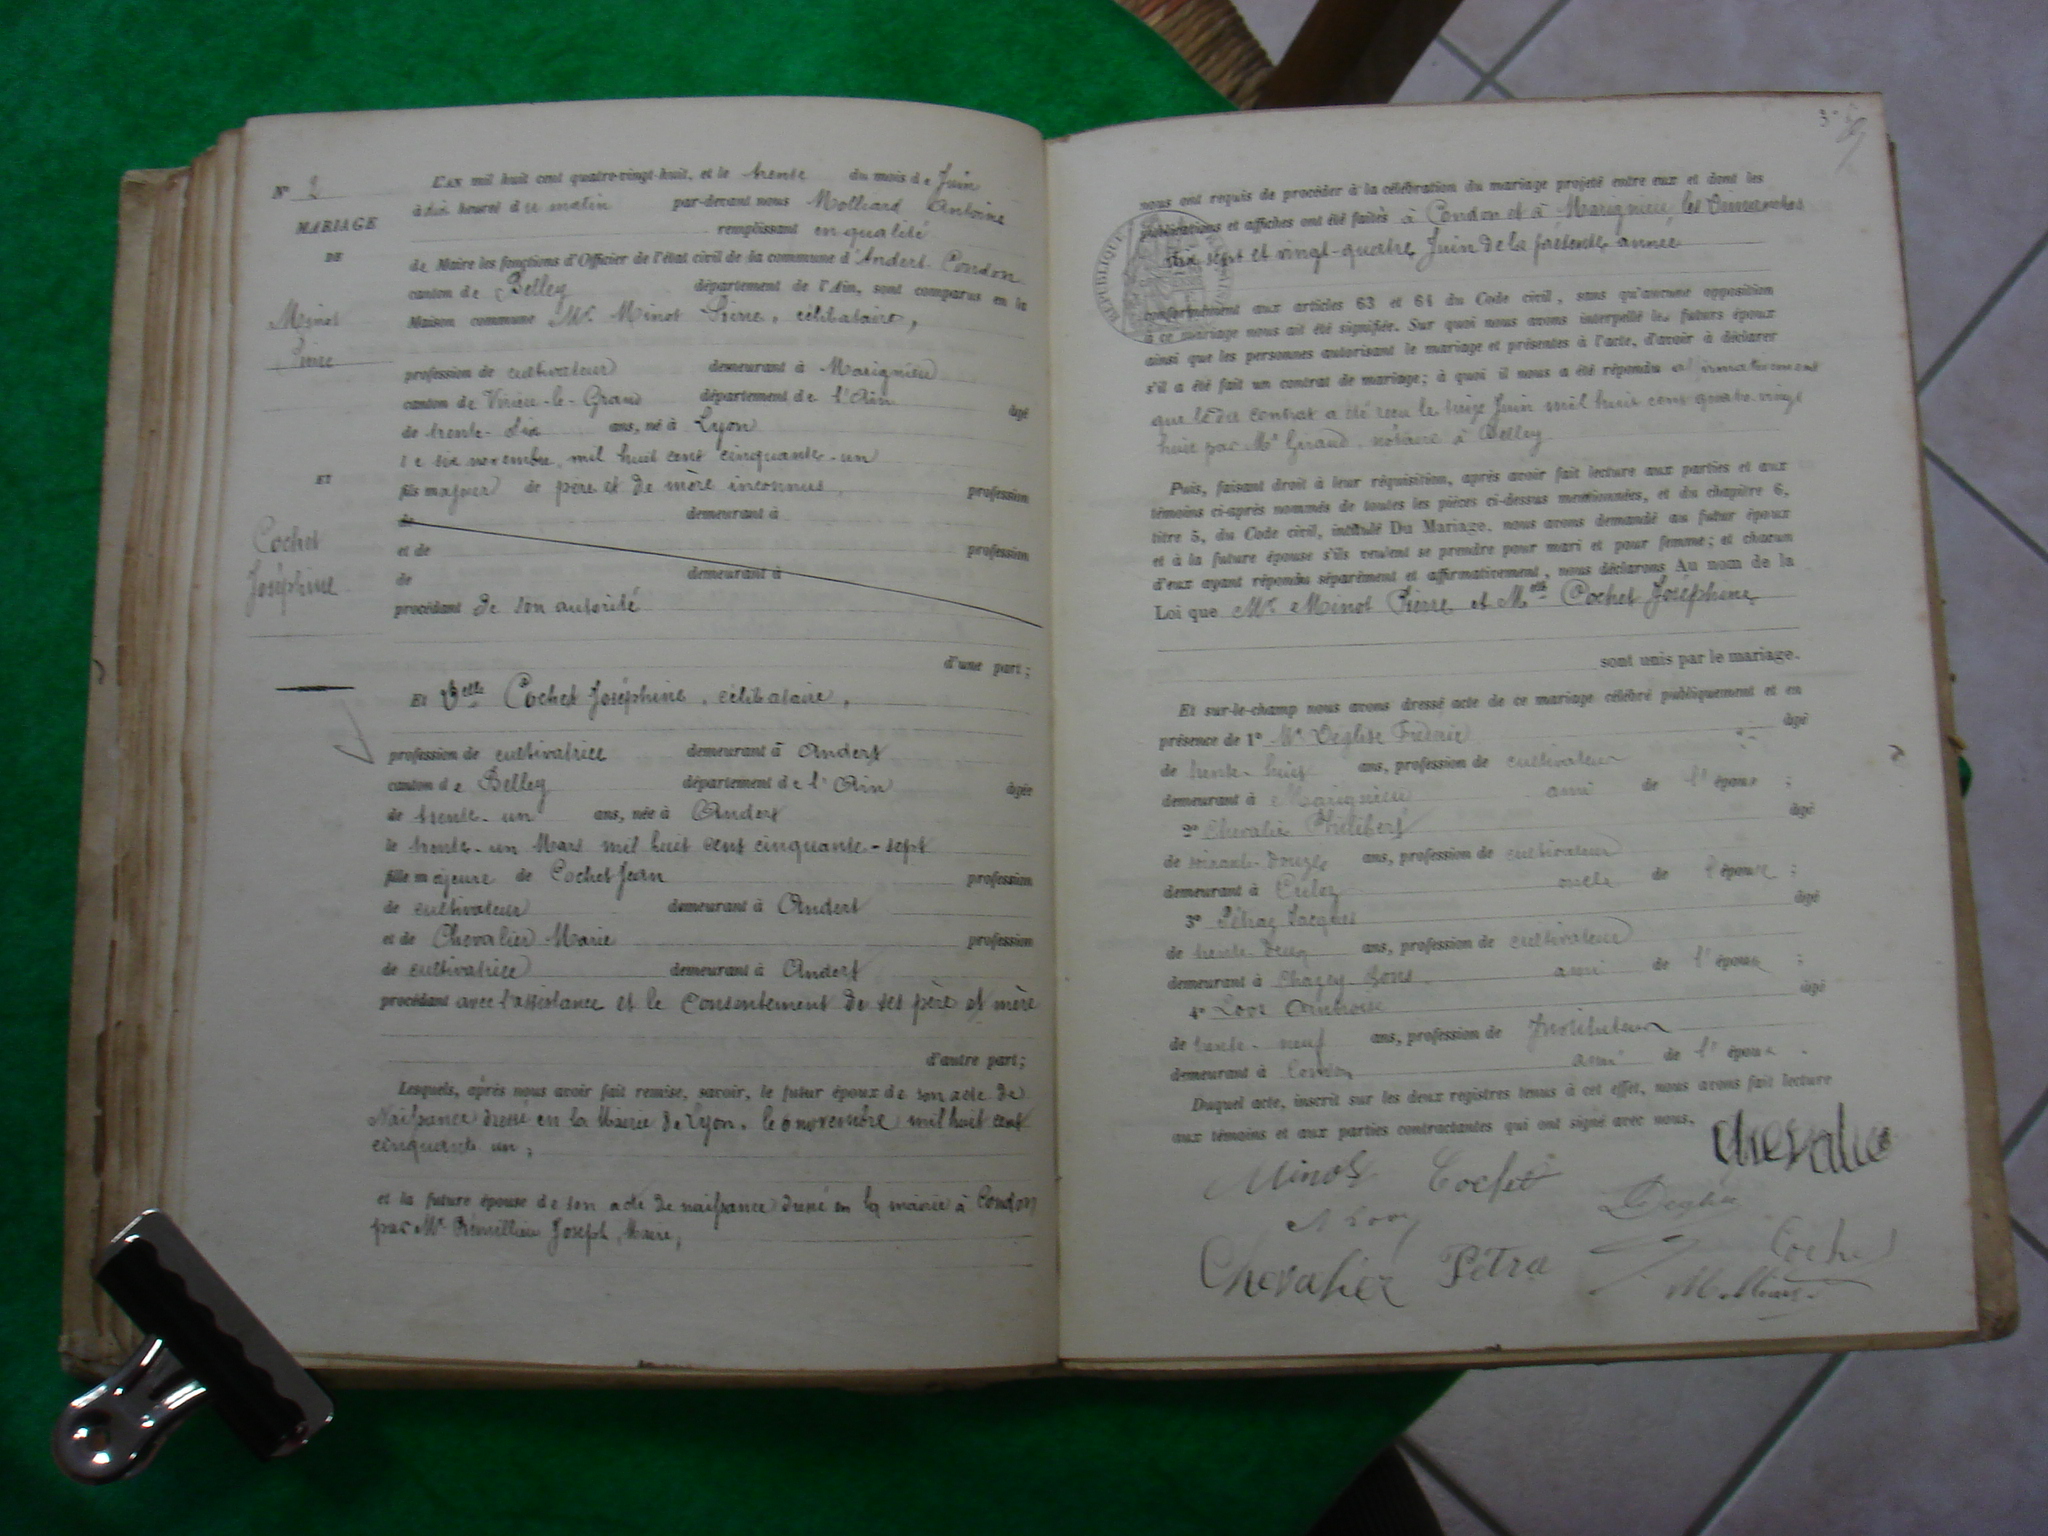 N° 2
MARIAGE
DE
Minot
Pierre
ET
Cochet
Joséphine
L'AN mil huit cent quatre-vingt-huit, et le trente du mois de Juin
à dix heures du matin par-devant nous Molliard Antoine
remplissant en qualité
de Maire les fonctions d'Officier de l'état civil de la commune d'Andert-Condon
canton de Belley département de l'Ain, sont comparus en la
Maison commune Mr Minot Pierre, célibataire,
profession de cultivateur demeurant à Marignieu
canton de Virieu-le-Grand département de l'Ain âgé
de trente-six ans, né à Lyon
le six novembre mil huit cent cinquante-un
fils majeur de père et de mère inconnus, profession
de demeurant à
et de profession
de demeurant à
procédant de son autorité
d'une part;
Et Delle Cochet Joséphine, célibataire,
profession de cultivatrice demeurant à Andert
canton de Belley département de l'Ain âgée
de trente-un ans, née à Andert
le trente-un Mars mil huit cent cinquante-sept
fille majeure de Cochet Jean profession
de cultivateur demeurant à Andert
et de Chevalier Marie profession
de cultivatrice demeurant à Andert
procédant avec l'assistance et le consentement de ses père et mère
d'autre part;
Lesquels, après nous avoir fait remise, savoir, le futur époux de son acte de
Naissance dressé en la Mairie de Lyon, le 6 novembre mil huit cent
cinquante un;
et la future épouse de son acte de naissance dressé en la mairie à Condon
par Mr Joseph, Maire,
nous ont requis de procéder à la célébration du mariage projeté entre eux et dont les
publications et affiches ont été faites à Condon et à Marignieu, les Dimanches
dix sept et vingt-quatre Juin de la présente année
conformément aux articles 63 et 64 du Code civil, sans qu'aucune opposition
à ce mariage nous ait été signifiée. Sur quoi nous avons interpellé les futurs époux
ainsi que les personnes autorisant le mariage et présentes à l'acte, d'avoir à déclarer
s'il a été fait un contrat de mariage; à quoi il nous a été répondu affirmativement
que le dit contrat a été reçu le treize Juin mil huit cent quatre-vingt
huit par Me Giraud, notaire à Belley
Puis, faisant droit à leur réquisition, après avoir fait lecture aux parties et aux
témoins ci-après nommés de toutes les pièces ci-dessus mentionnées, et du chapitre 6,
titre 5, du Code civil, intitulé Du Mariage, nous avons demandé au futur époux
et à la future épouse s'ils veulent se prendre pour mari et pour femme; et chacun
d'eux ayant répondu séparément et affirmativement, nous déclarons Au nom de la
Loi que Mr Minot Pierre et Melle Cochet Joséphine
sont unis par le mariage.
Et sur-le-champ nous avons dressé acte de ce mariage célébré publiquement et en
présence de 1° Mr Déglise Frédéric âgé
de trente-huit ans, profession de cultivateur
demeurant à Marignieu ami de l'époux;
2° Chevalier Philibert âgé
de soixante-douze ans, profession de cultivateur
demeurant à Culoz oncle de l'épouse;
3° Pétraz Jacques âgé
de trente-deux ans, profession de cultivateur
demeurant à Chazey-Bons ami de l'épouse;
4° Ambroise âgé
de trente-neuf ans, profession de Instituteur
demeurant à Condon ami de l'époux.
Duquel acte, inscrit sur les deux registres tenus à cet effet, nous avons fait lecture
aux témoins et aux parties contractantes qui ont signé avec nous.
Chevalier
Minot Cochet
Chevalier Pétra Cochet
Molliard